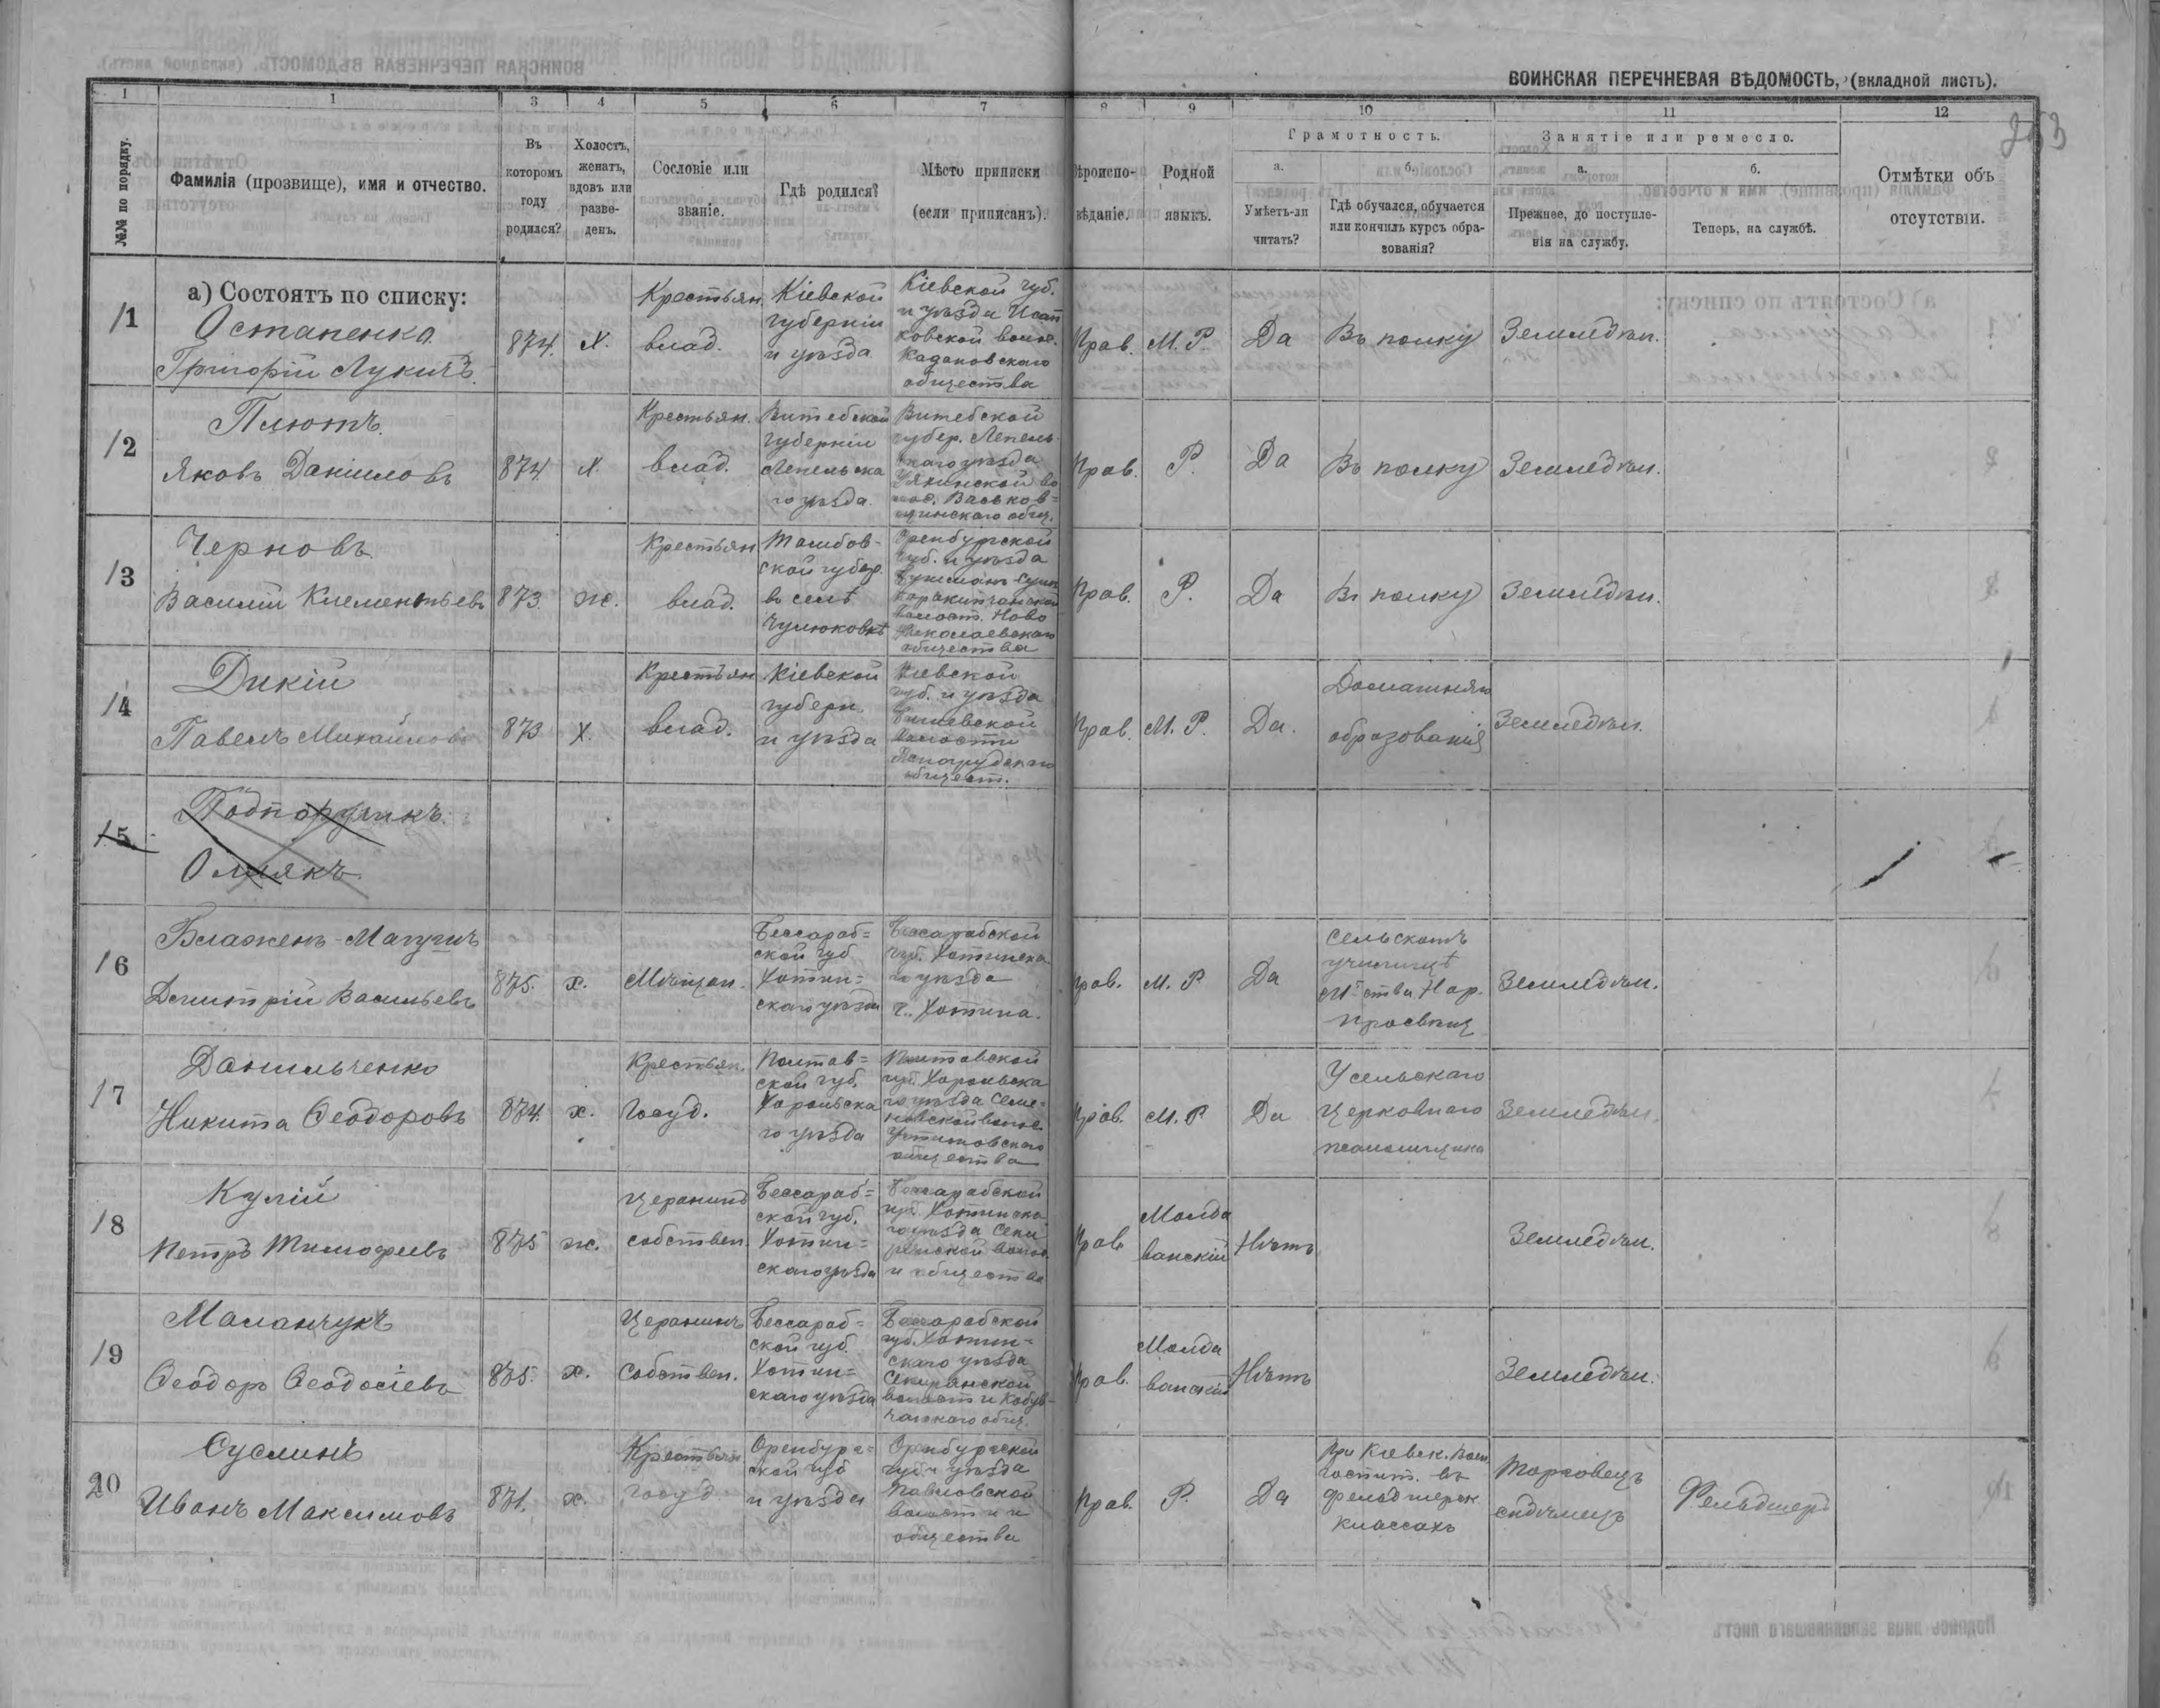 ВОИНСКАЯ ПЕРЕЧНЕВАЯ ВѢДОМОСТЬ, (вкладной листъ).
253
1 1 3 4 5 6 7 8 9 10 11 12
№№ по порядку.
Фамилія (прозвище), имя и отчество.
Въ которомъ году родился?
Холостъ, женатъ, вдовъ или разведенъ.
Сословіе или званіе.
Гдѣ родился?
Мѣсто приписки (если приписанъ).
Вѣроисповѣданіе.
Родной языкъ.
Грамотность.
а. Умѣетъ-ли читать?
б. Гдѣ обучался, обучается или кончилъ курсъ образованія?
Занятіе или ремесло.
а. Прежнее, до поступленія на службу.
б. Теперь, на службѣ.
Отмѣтки объ отсутствіи.
а) Состоятъ по списку:
11
Остапенко
Григорій Лукичъ
874. Х.
Крестьян. влад.
Кіевской губерніи и уѣзда
Кіевской губ. и уѣзда
общества
Прав. М. Р. Да Въ полку Земледѣл.
12
Плютъ
Яковъ Даніиловъ
874. Х.
Крестьян. влад.
Витебской губерніи Лепельскаго уѣзда
Витебской губер. Лепельскаго уѣзда
Прав. Р. Да Въ полку Земледѣл.
13
Черновъ
Василій Клементьевъ
873. ж.
Крестьян влад.
Тамбовской губер. въ селѣ
Оренбургской губ. и уѣзда
Ново Николаевскаго общества
Прав. Р. Да Въ полку Земледѣл.
14
Дикій
Павелъ Михайловъ
873 Х.
Крестьян влад.
Кіевской губерн. и уѣзда
Кіевской губ. и уѣзда
волости
общест.
Прав. М. Р. Да. Домашняго образованія Земледѣл.
15
Подпоручикъ
16
Дмитрій Васильевъ
875. х.
Мѣщан.
Бессарабской губ Хотинскаго уѣзда
Бессарабской губ. Хотинскаго уѣзда г. Хотина.
Прав. М. Р Да
Сельскомъ училищѣ М-ства Нар. Просвѣщ
Земледѣл.
17
Данильченко
Никита Ѳеодоровъ
874. х.
Крестьян. Госуд.
Полтавской губ. Хорольскаго уѣзда
Полтавской губ. Хорольскаго уѣзда Семеновской волос. Устимовскаго общества
Прав. М. Р Да
У сельскаго церковнаго псаломщика
Земледѣл.
18
Кулій
Петръ Тимофеевъ
875 ж.
Царанинъ собствен.
Бессарабской губ. Хотинскаго уѣзда
Бессарабской губ. Хотинскаго уѣзда
и общества
Прав Молдаванскій Нѣтъ Земледѣл.
19
Маланчукъ
Ѳеодоръ Ѳеодосіевъ
875. х.
Царанинъ Собствен.
Бессарабской губ. Хотинскаго уѣзда
Бессарабской губ. Хотинскаго уѣзда Секурянской волости
Прав. Молдаванскій Нѣтъ Земледѣл.
20
Суслинъ
Иванъ Максимовъ
871. х.
Крестьян госуд
Оренбургской губ и уѣзда
Оренбургской губ и уѣзда Павловской волости и общества
Прав. Р. Да
При Кіевск.
госпит. въ фельдшерск классахъ
Торговецъ
Фельдшеръ